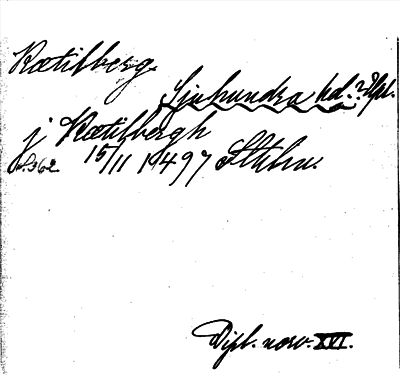 Rætilberg.
Sjuhundra hd.? Upl.
j Rætilbergh
s. 362 15/11 1497 Sthlm.
Dipl. norv. XVI.